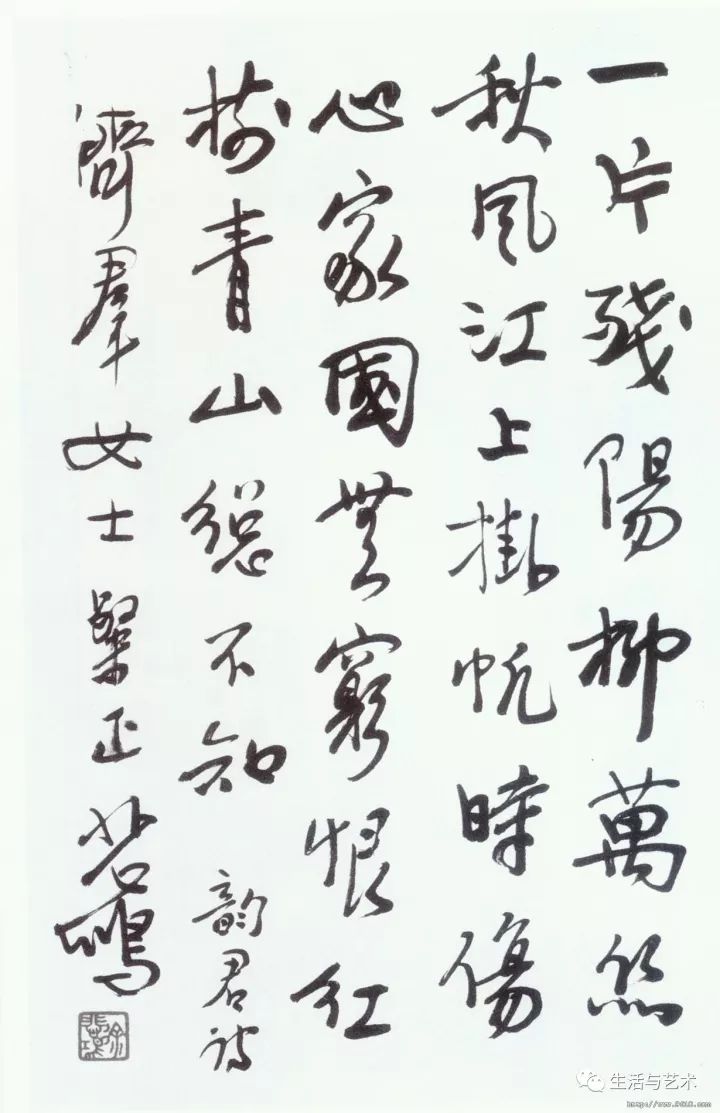 一片殘陽柳萬絲
秋風江上掛帆時傷
心家國無窮恨紅
樹青山總不知 韵君詩
齊羣女士粲正 悲鴻
生活与艺术